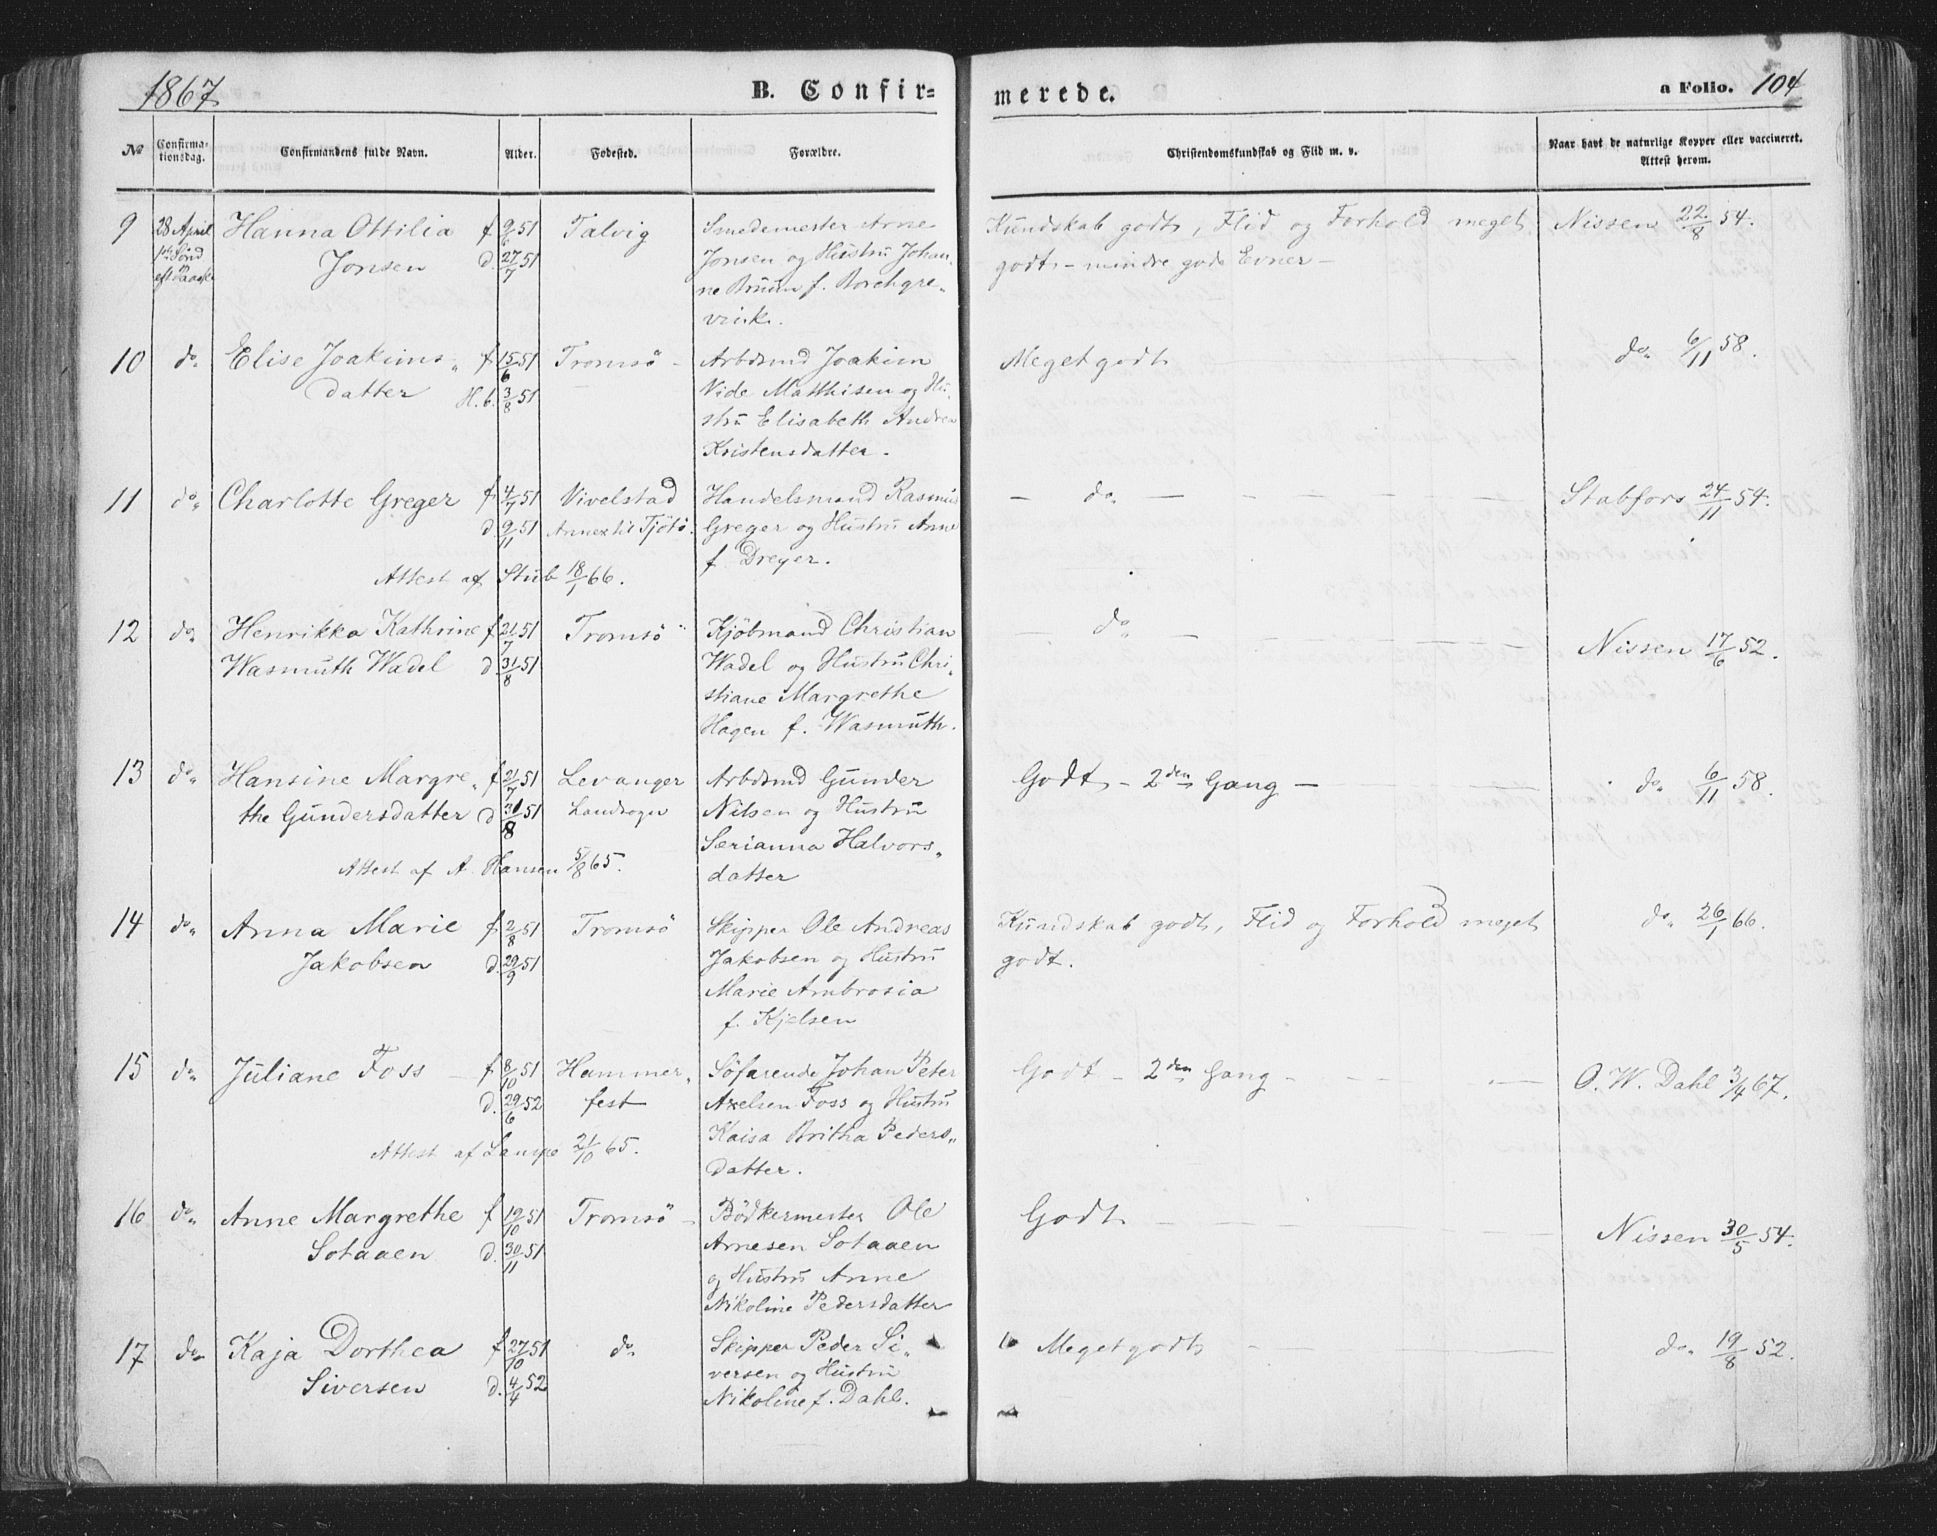 1867 B. Confir= merede. a Folio. 104
No Confirma-tionsdag. Confirmandens fulde Navn. Alder. Fødested. Forældre. Christendomskundskab og Flid m. v. Naar havt de naturlige Kopper eller vaccineret. Attest herom.
9 28 April Hanna Ottilia f 9/6 51 Talvig Smedemester Arne Kundskab godt, Flid og Forhold meget Nissen 22/8 54.
1ste Sønd eft Paaske Jonsen d. 27/7 51 Jonsen og Hustru Johan- godt – mindre gode Evner –
ne Bruun f. Borchgre-
vink.
10 do Elise Joakims- f 15/6 51 Tromsö Arbdsmd Joakim Meget godt do 6/11 58.
datter H.b. 3/8 51 Vide Matthisen og Hu-
stru Elisabeth Andrea
Kristensdatter.
11 do Charlotte Greger f 4/7 51 Vivelstad Handelsmand Rasmus – do – Stabfors 24/11 54.
d. 9/11 51 Annex til Tjötö. Greger og Hustru Anne
f. Dreyer.
Attest af Stub 18/1 66.
12 do Henrikka Kathrine f 21/7 51 Tromsö Kjöbmand Christian – do – Nissen 17/6 52.
Wasmuth Wadel d 31/8 51 Wadel og Hustru Chri-
stiane Margrethe
Hagen f. Wasmuth.
13 do Hansine Margre- f 21/7 51 Levanger Arbdsmd Gunder Godt – 2den Gang – do 6/11 58.
the Gundersdatter d 31/8 51 Landsogn Nilsen og Hustru
Serianna Halvors-
Attest af A. Hansen 5/8 65. datter
14 do Anna Marie f 2/8 51 Tromsö Skipper Ole Andreas Kundskab godt, Flid og Forhold meget do 26/1 66.
Jakobsen d. 29/9 51 Jakobsen og Hustru godt.
Marie Ambrosia
f. Kjelsen
15 do Juliane Foss – f 8/10 51 Hammer- Söfarende Johan Peter Godt – 2den Gang – O. W. Dahl 3/4 67.
d. 29/6 52 fest Axelsen Foss og Hustru
Kaisa Britha Peders-
Attest af Lampe 21/10 65. datter.
16 do Anne Margrethe f 19/10 51 Tromsö – Bödkermester Ole Godt Nissen 30/5 54.
Sotaaen d. 30/11 51 Arnesen Sotaaen
og Hustru Anne
Nikoline Pedersdatter
17 do Kaja Dorthea f 27/10 51 do Skipper Peder Si- Meget godt do 19/8 52.
Siversen d. 4/4 52 versen og Hustru
Nikoline f. Dahl.